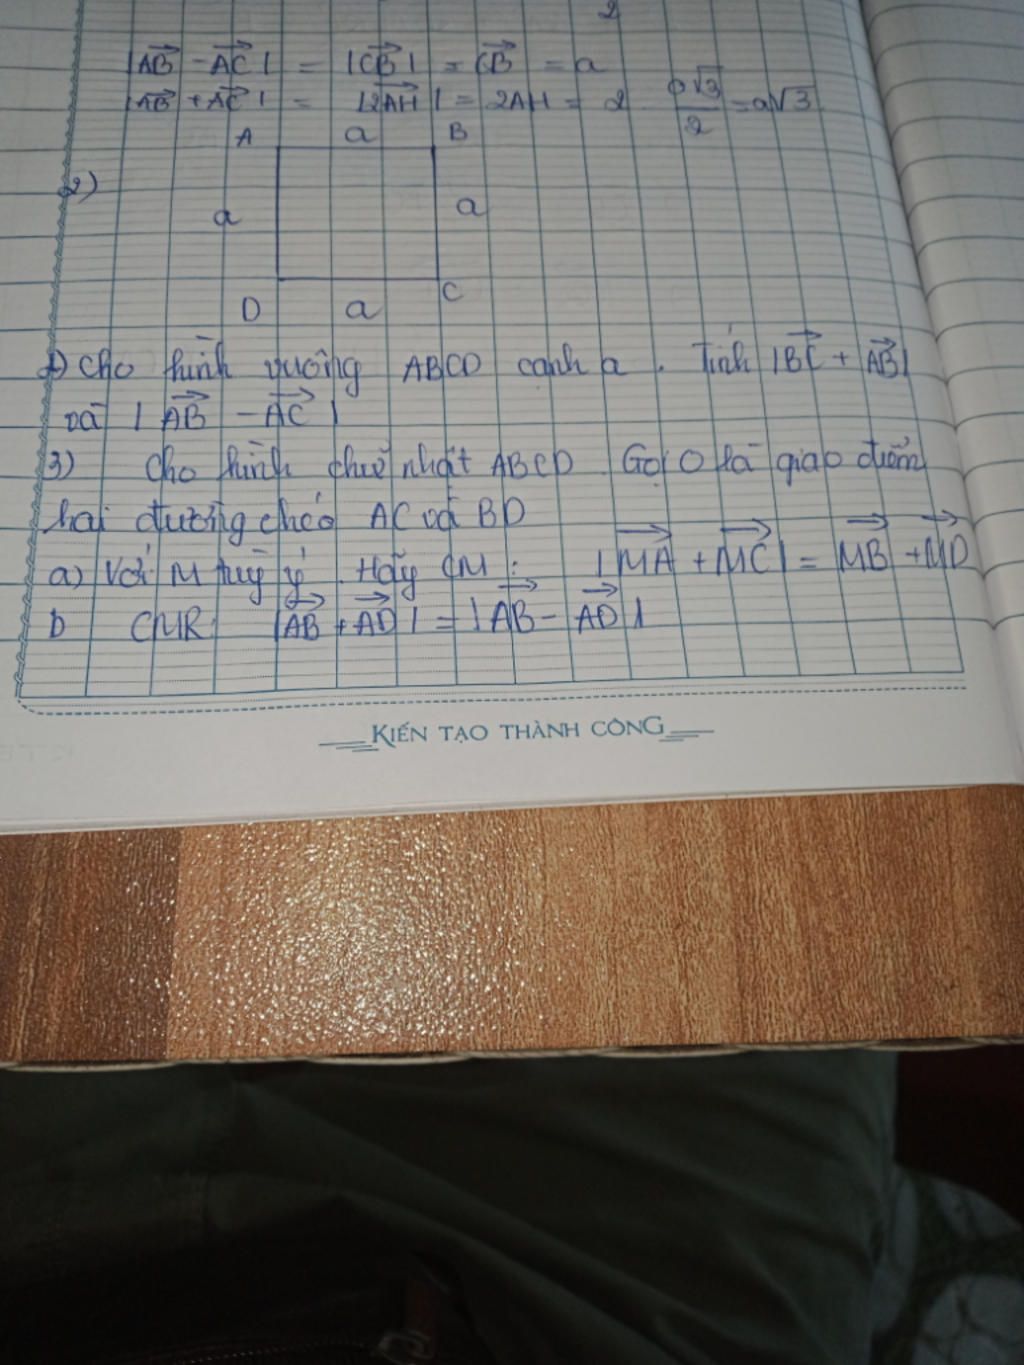 2
|AB⃗ - AC⃗| = |CB⃗| = CB⃗ = a
|AB⃗ + AC⃗| = |2AH⃗| = 2AH = 2 a√3/2 = a√3
A a B
2)
a a
D a C
2) Cho hình vuông ABCD cạnh a. Tính |BC⃗ + AB⃗|
và |AB⃗ - AC⃗|
3) Cho hình chữ nhật ABCD Gọi O là giao điểm
hai đường chéo AC và BD
a) Với M tuỳ ý. Hãy CM: |MA⃗ + MC⃗| = MB⃗ + MD⃗
b CMR |AB⃗ + AD⃗| = |AB⃗ - AD⃗|
KIẾN TẠO THÀNH CÔNG